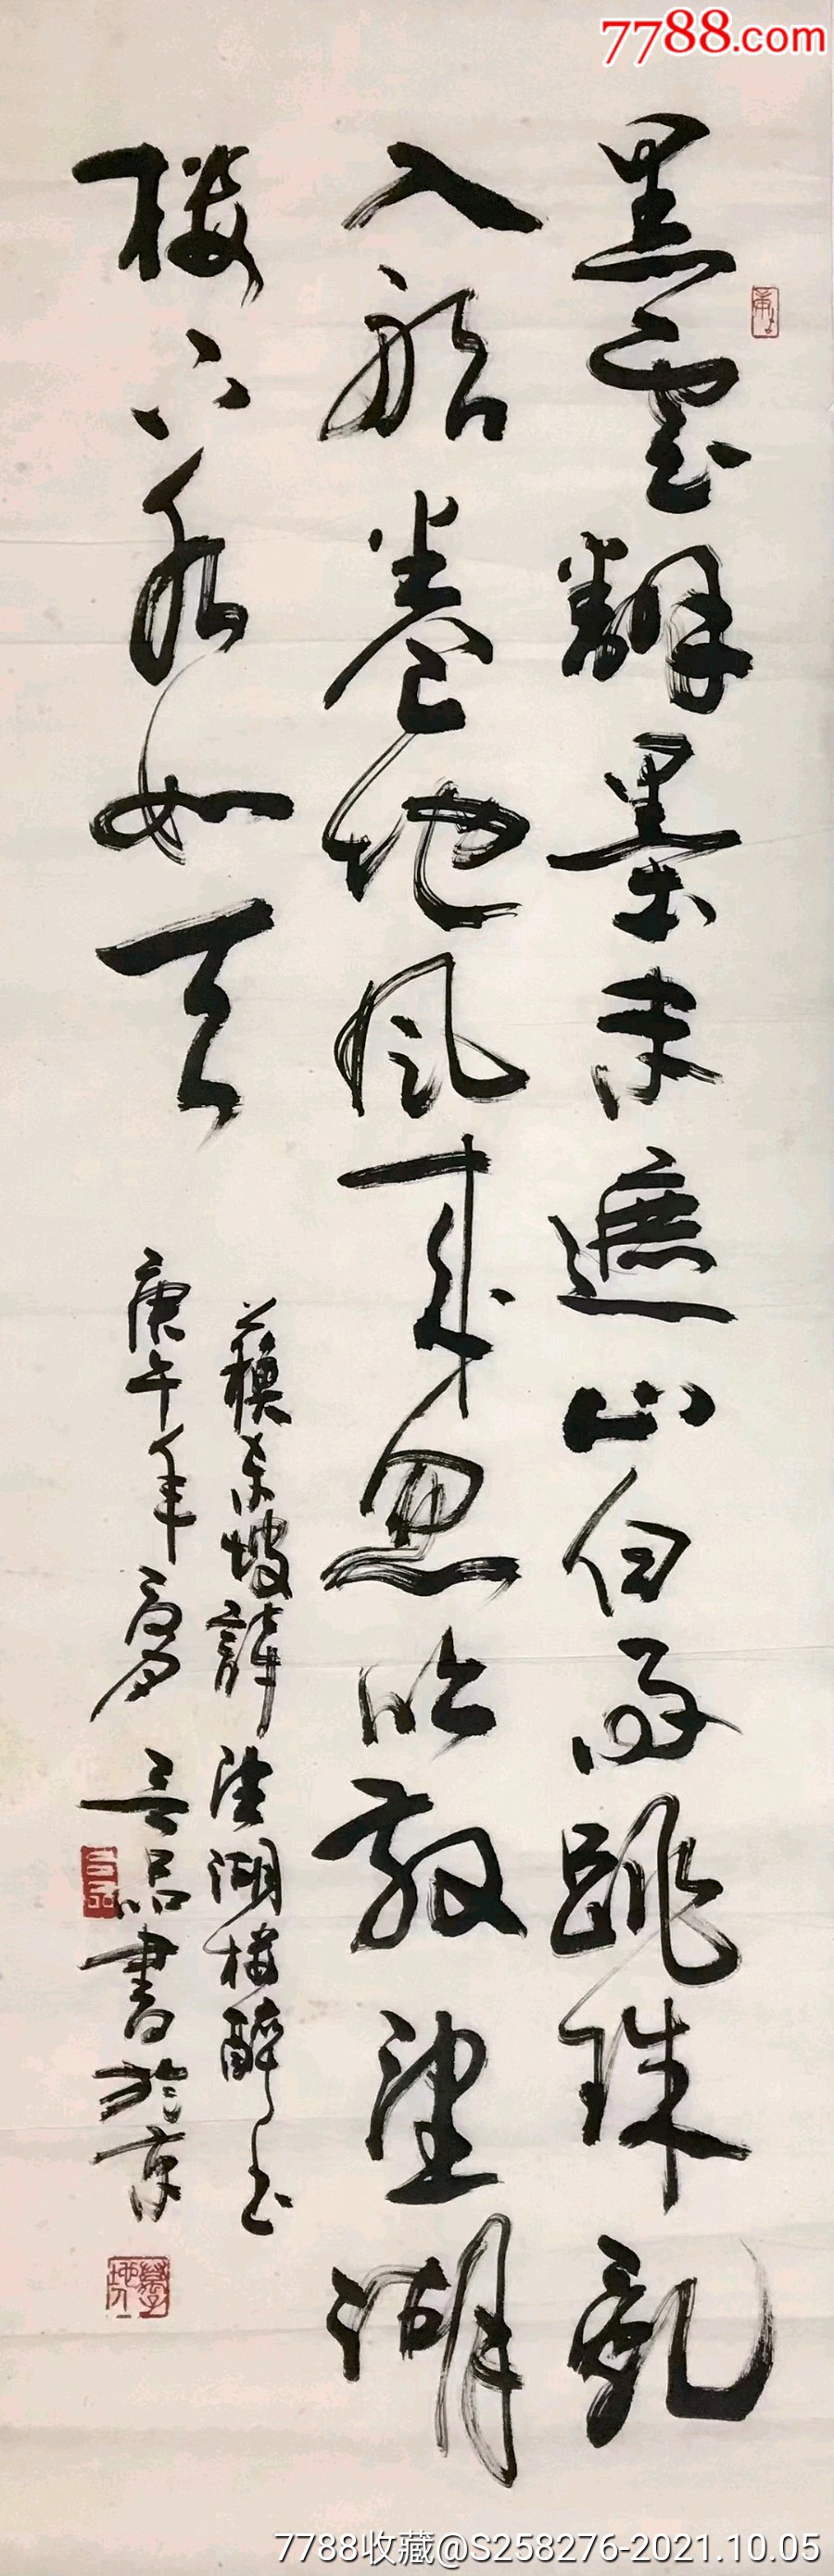 7788.com
黑雲翻墨未遮山白雨跳珠亂
入船卷地風來忽吹散望湖
樓下水如天
蘇東坡詩望湖樓醉書
庚午年夏品書於京
7788收藏@S258276-2021.10.05